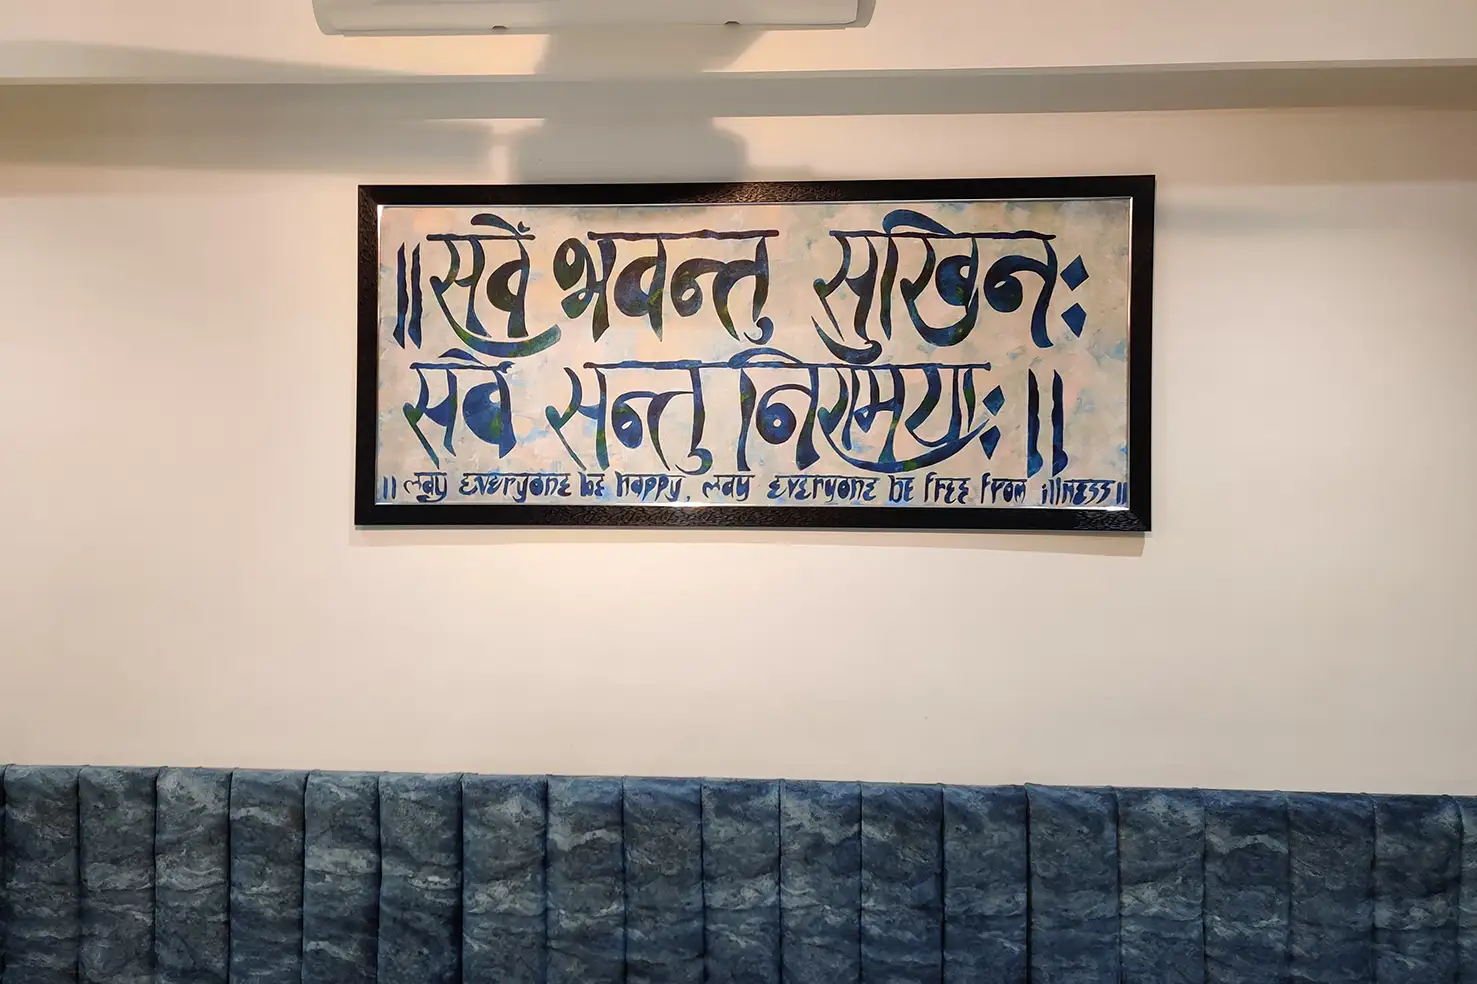 ॥ सर्वे भवन्तु सुखिनः
सर्वे सन्तु निरामयाः ॥
॥ May everyone be happy, May everyone be free from illness ॥